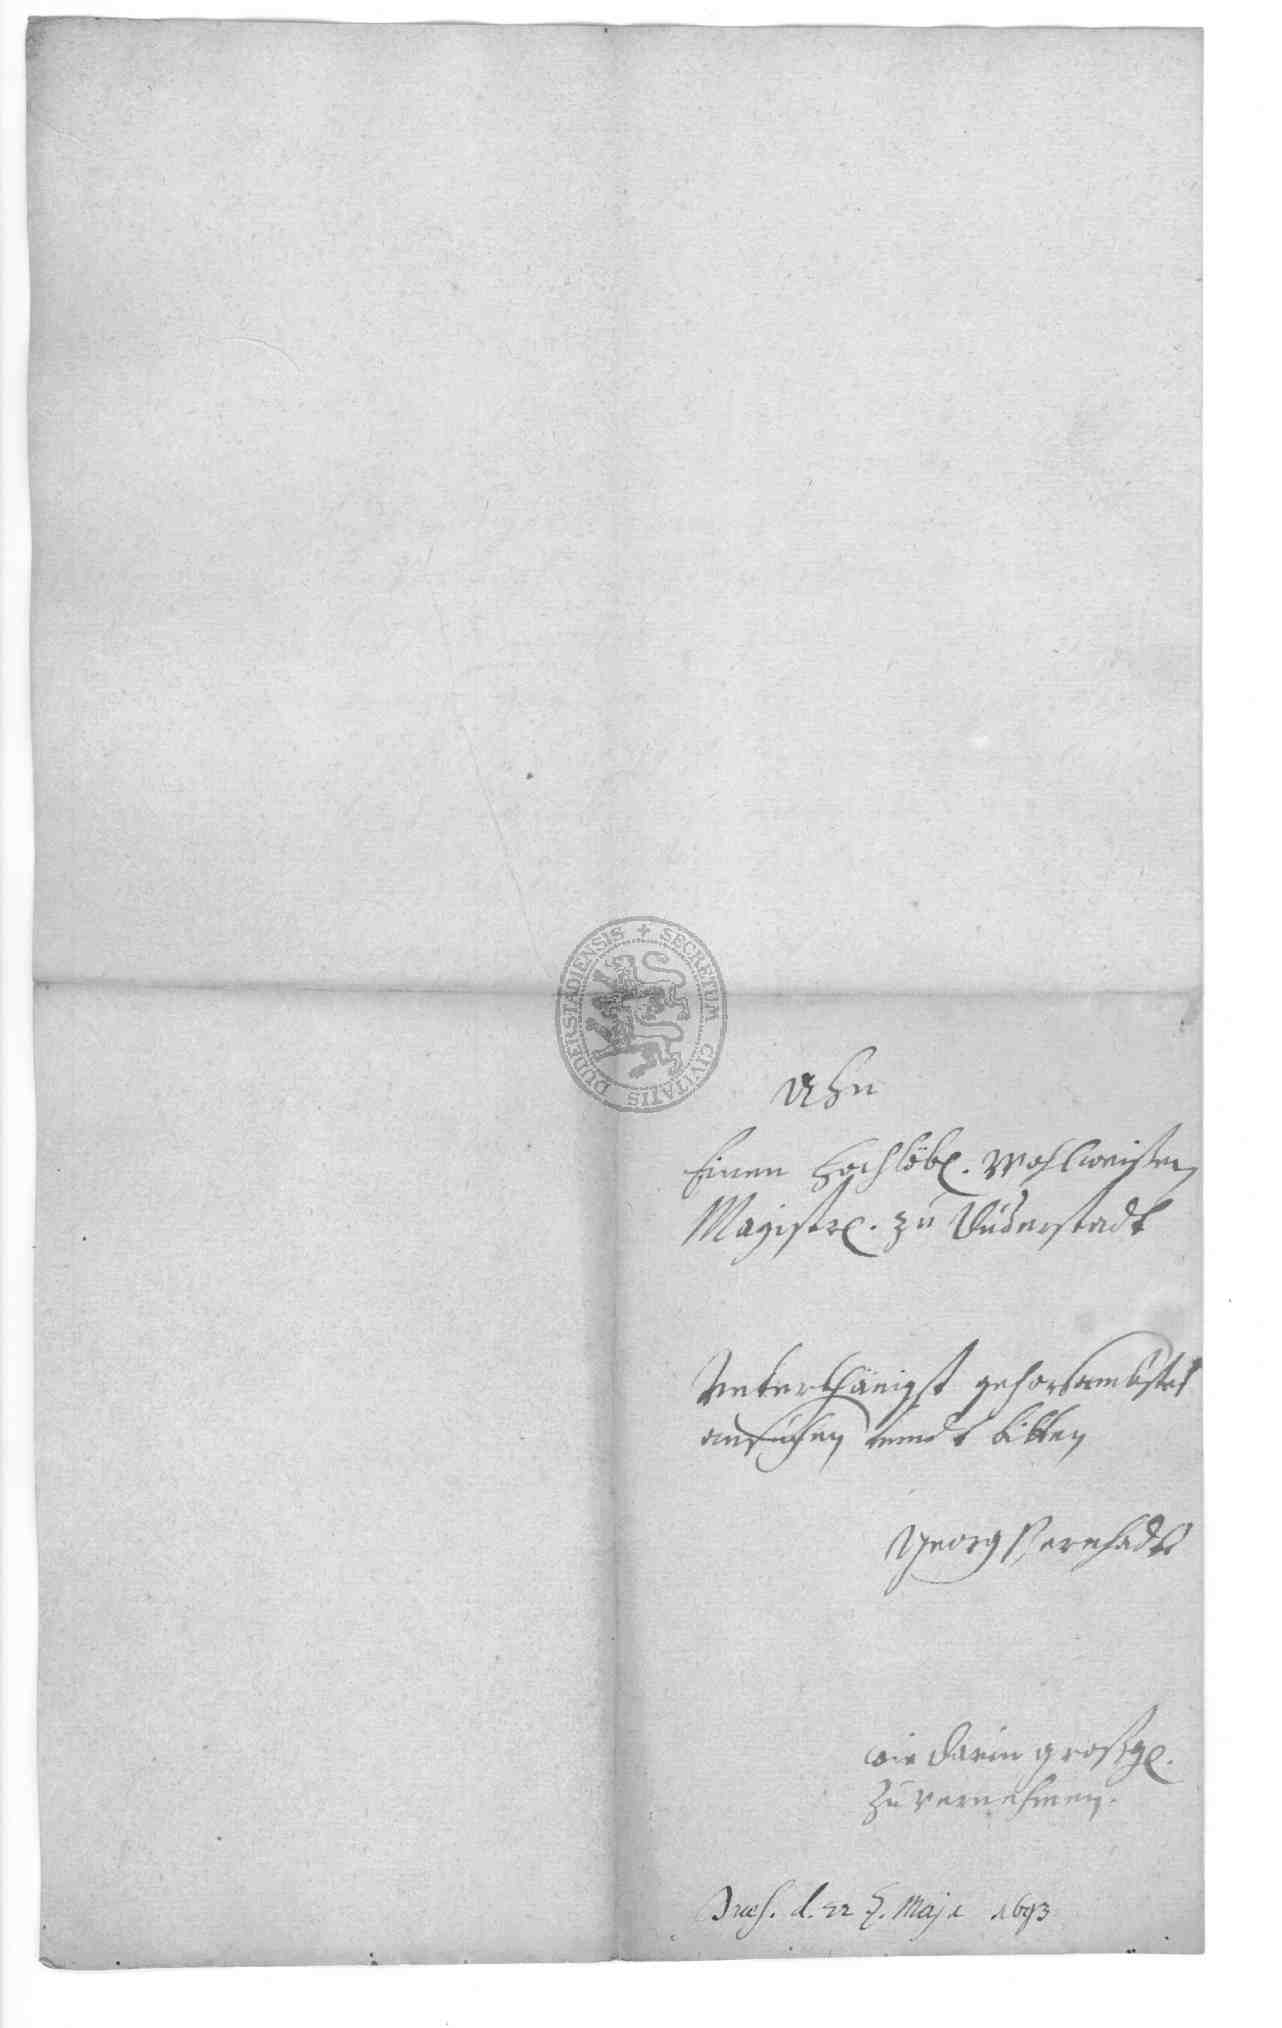 SECRETUM CIVITATIS DUDERSTADIENSIS
Ahn
Einen Hochlöbl. Wohlweisen
Magistr. zu Duderstadt
Unterthänigst gehorsambstes
ansuchen undt bitten
Georg
wie darin großgl.
zu vernehmen.
Præs. d. 22 t. Maji 1693